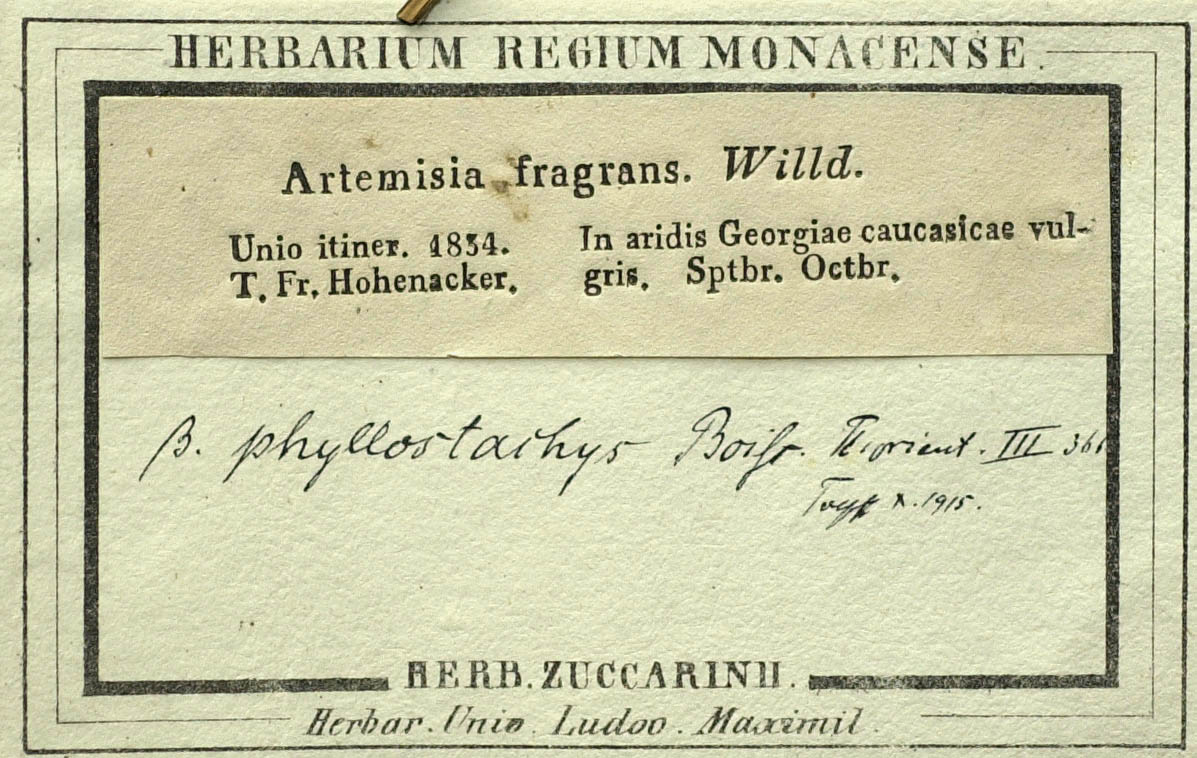 HERBARIUM REGIUM MONACENSE.
Artemisia fragrans. Willd.
Unio itiner. 1834.
T. Fr. Hohenacker.
In aridis Georgiae caucasicae vul-
gris. Sptbr. Octbr.
β. phyllostachys Boiss. Fl. orient. III
X. 1915.
HERB. ZUCCARINII.
Herbar. Univ. Ludov. Maximil.